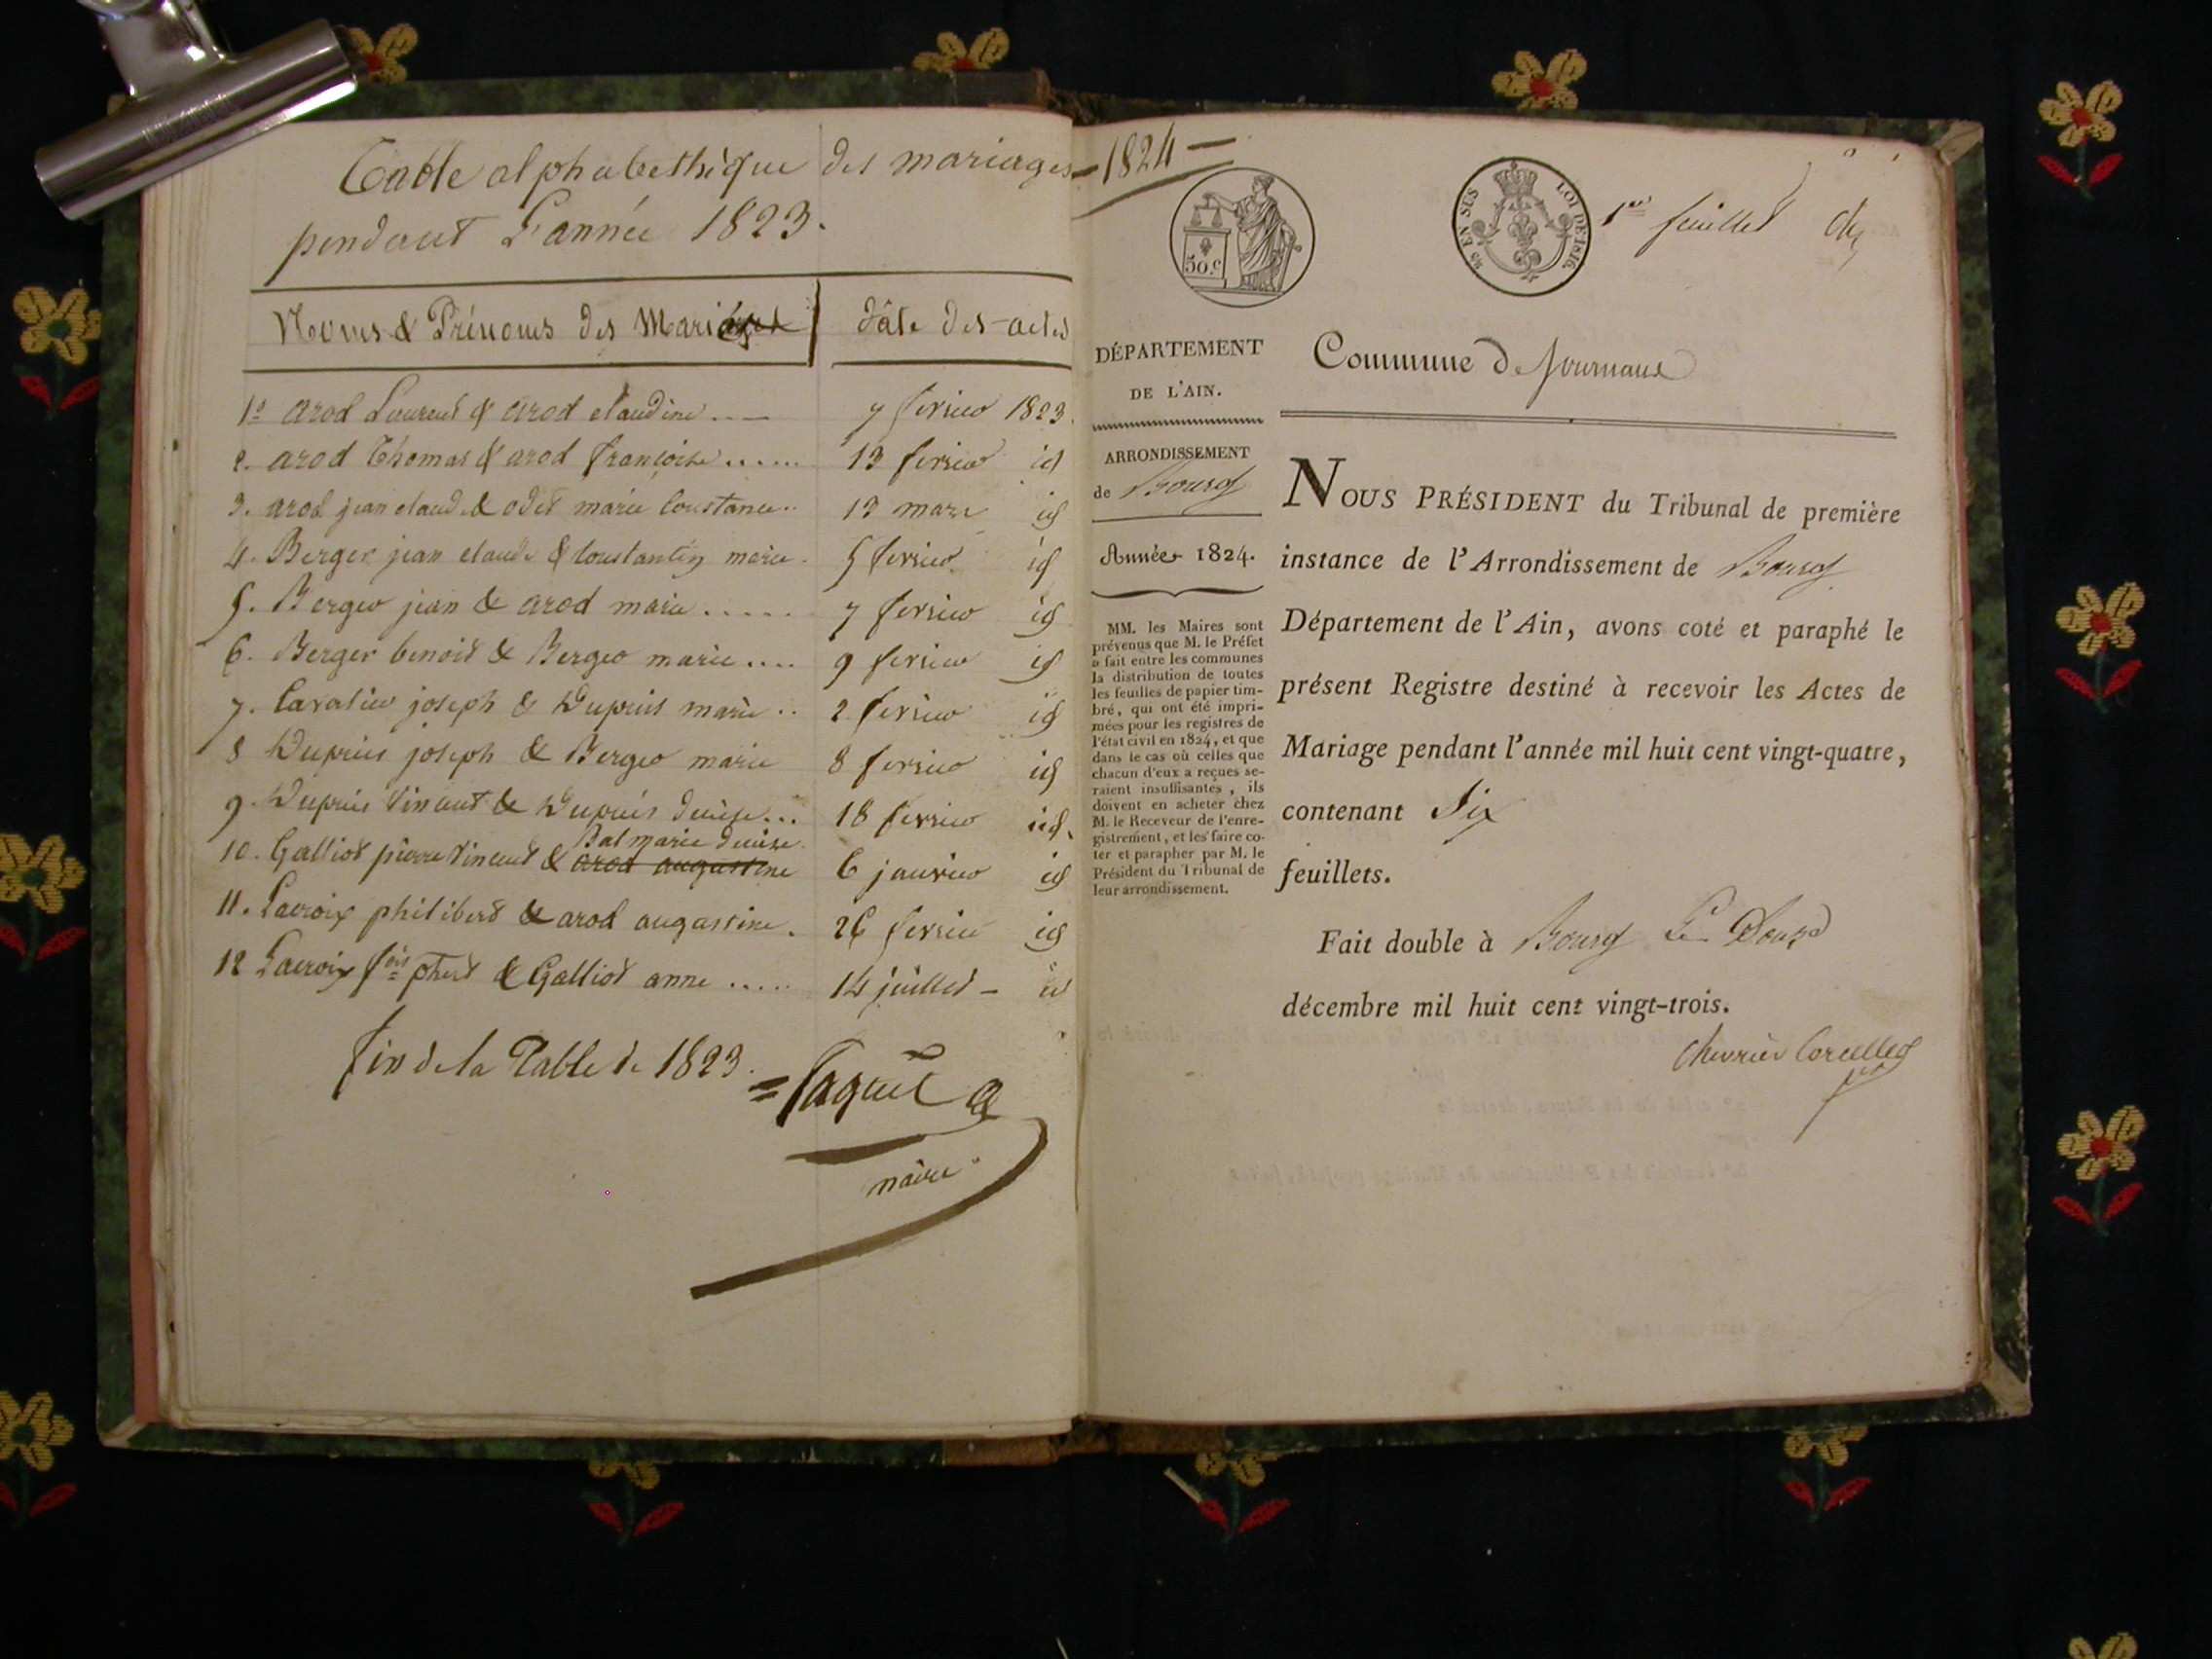 Table alphabesthèque des mariages
pendant L'année 1823.
Noms & Prénoms des Mariés
dâte des actes
1º arod Laurent & arod claudine
7 fevrier 1823.
2. arod Thomas & arod françoise ......
13 fevrier id
3. arod jean claude & odet marie Constance ..
13 mars id
4. Berger jean claude & Constantin marie .
5 fevrier id
5. Berger jean & arod marie .....
7 fevrier id
6. Berger benoit & Berger marie ....
9 fevrier id
7. Cavalier joseph & Dupuis marie ..
2 fevrier id
8 Dupuis joseph & Berger marie
8 fevrier id
9. Dupuis Vincent & Dupuis denise ...
18 fevrier id.
Bal marie denise
10. Galliot pierre Vincent & arod augustine
6 janvier id
11. Lacroix philibert & arod augastine .
26 fevrier id
12 Lacroix fois phert & Galliot anne .....
14 juillet - id
fin de la Table de 1823.
maire
- 1824 -
50.c
LOI DE 1816.
1er feuillet
DÉPARTEMENT
DE L'AIN.
ARRONDISSEMENT
de Bourg
Année 1824.
MM. les Maires sont
prévenus que M. le Préfet
a fait entre les communes
la distribution de toutes
les feuilles de papier tim-
bré, qui ont été impri-
mées pour les registres de
l'état civil en 1824, et que
dans le cas où celles que
chacun d'eux a reçues se-
raient insuffisantes, ils
doivent en acheter chez
M. le Receveur de l'enre-
gistrement, et les faire co-
ter et parapher par M. le
Président du Tribunal de
leur arrondissement.
Commune de Journans
NOUS PRÉSIDENT du Tribunal de première
instance de l'Arrondissement de Bourg
Département de l'Ain, avons coté et paraphé le
présent Registre destiné à recevoir les Actes de
Mariage pendant l'année mil huit cent vingt-quatre,
contenant Six
feuillets.
Fait double à Bourg Le Douze
décembre mil huit cent vingt-trois.
Chevrier Corcelles